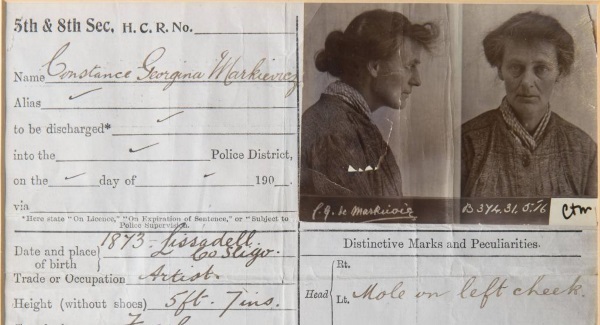 5th & 8th Sec. H. C. R. No.
Name Constance Georgina Markievicz
Alias
to be discharged*
into the Police District,
on the day of 190 .
via
*Here state "On Licence," "On Expiration of Sentence," or "Subject to
Police Supervision.
Date and place of birth } 1873 - Lissadell
Co Sligo.
Trade or Occupation Artist.
Height (without shoes) 5ft. 7ins.
C. G. de Markievicz
B 374. 31. 5. 16
Distinctive Marks and Peculiarities.
Head { Rt.
Lt. Mole on left cheek.